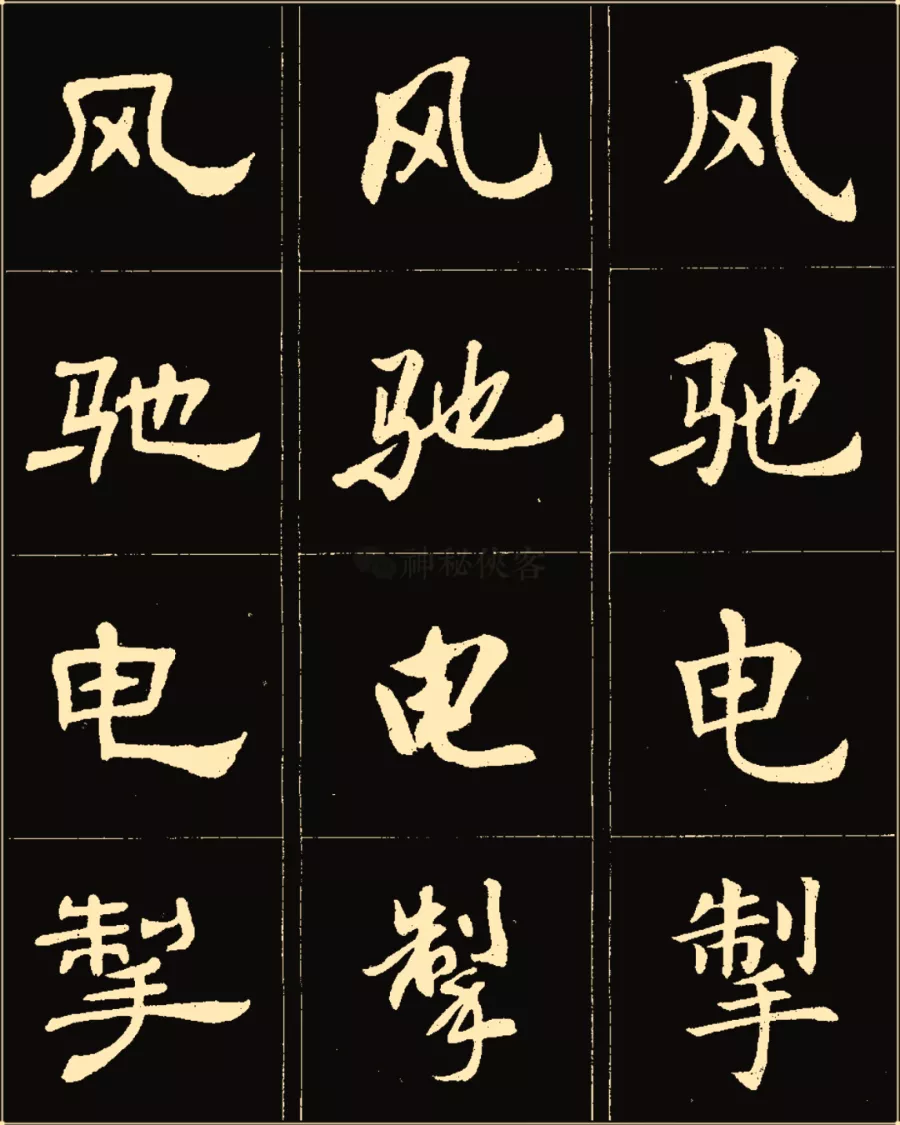 风 风 风
驰 驰 驰
神秘侠客
电 电 电
掣 掣 掣